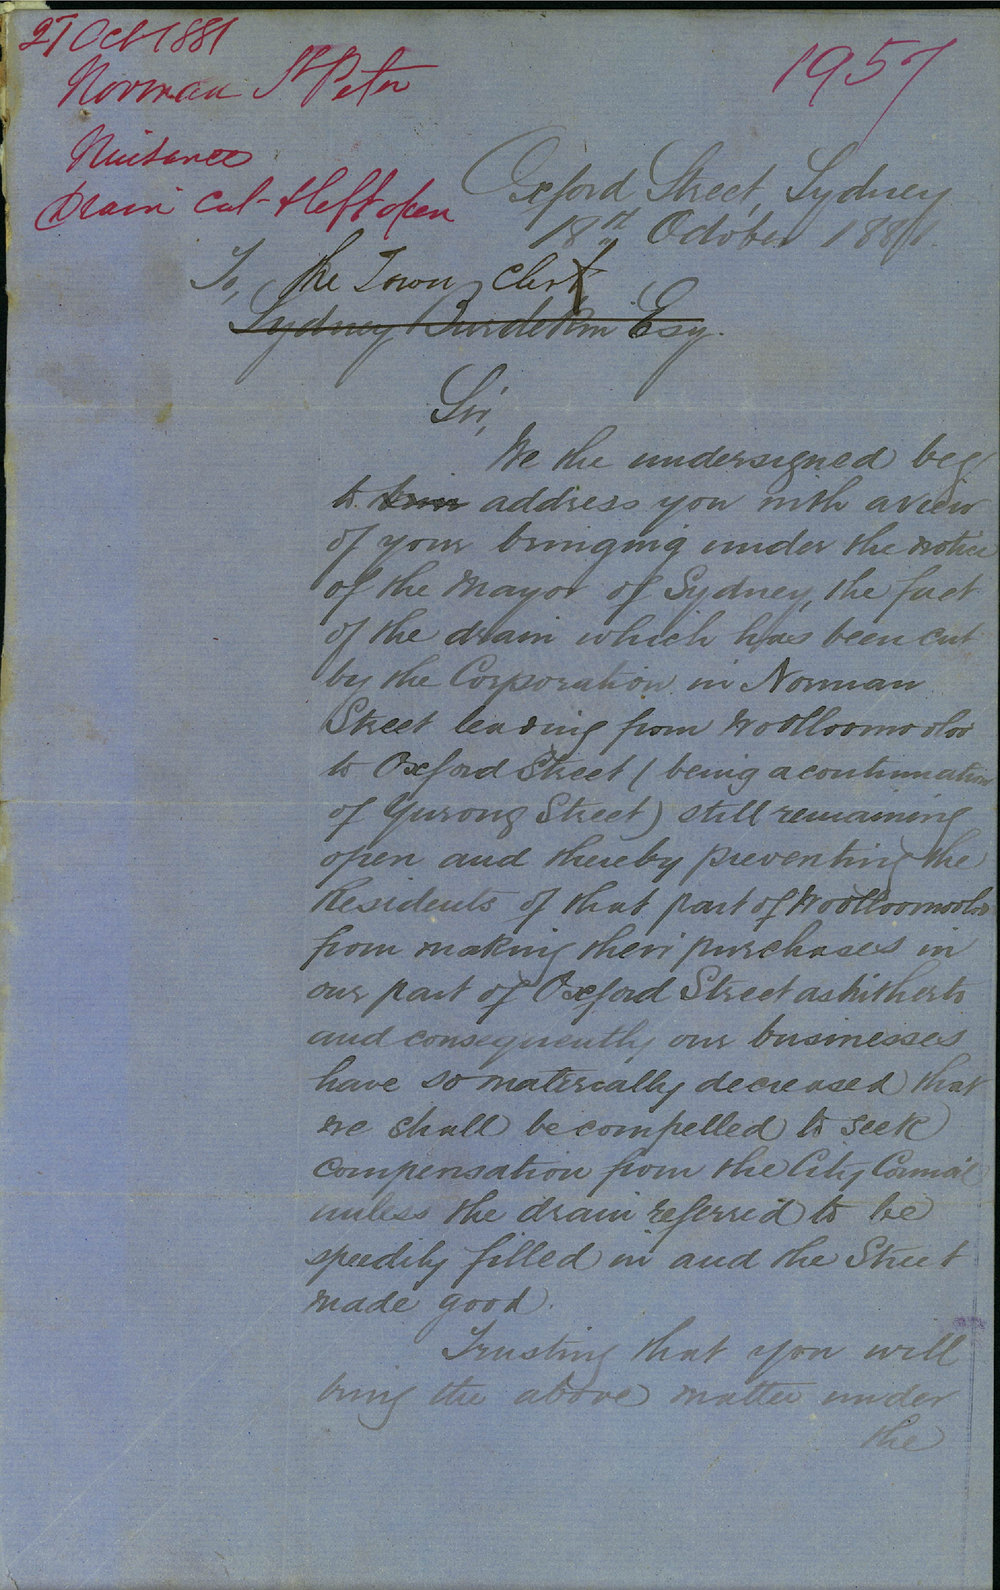 27 Oct 1881
1957
Norman St Peter
Nuisance
Drain cut & left open
Oxford Street, Sydney
18th October 1881.
To, the Town Clerk
Sydney Burdekin Esq.
Sir,
We the undersigned beg
to address you with a view
of your bringing under the notice
of the Mayor of Sydney, the fact
of the drain which has been cut
by the Corporation in Norman
Street leading from Woolloomooloo
to Oxford Street (being a continuation
of Yurong Street) still remaining
open and thereby preventing the
Residents of that part of Woolloomooloo
from making their purchases in
our part of Oxford Street as hitherto
and consequently our businesses
have so materially decreased that
we shall be compelled to seek
compensation from the City Council
unless the drain referred to be
speedily filled in and the Street
made good.
Trusting that you will
bring the above matter under
the